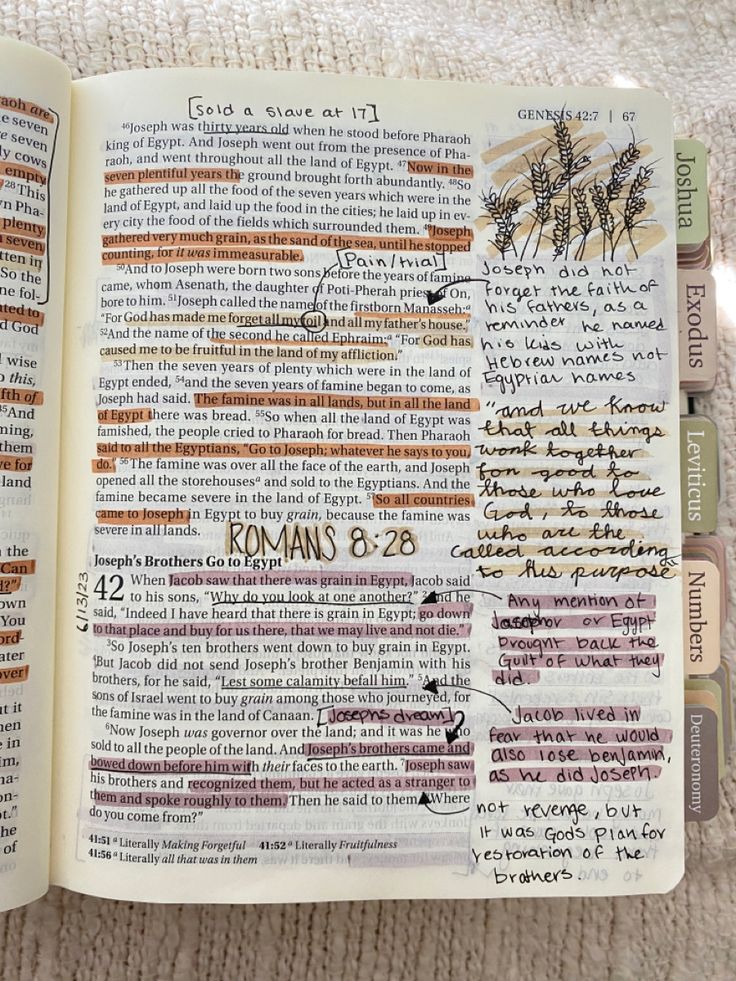 [sold a slave at 17]
GENESIS 42:7 | 67
46Joseph was thirty years old when he stood before Pharaoh
king of Egypt. And Joseph went out from the presence of Pha-
raoh, and went throughout all the land of Egypt. 47Now in the
seven plentiful years the ground brought forth abundantly. 48So
he gathered up all the food of the seven years which were in the
land of Egypt, and laid up the food in the cities; he laid up in ev-
ery city the food of the fields which surrounded them. 49Joseph
gathered very much grain, as the sand of the sea, until he stopped
counting, for it was immeasurable.
[Pain/trial]
50And to Joseph were born two sons before the years of famine
came, whom Asenath, the daughter of Poti-Pherah priest of On,
bore to him. 51Joseph called the name of the firstborn Manasseh:a
"For God has made me forget all my toil and all my father's house."
52And the name of the second he called Ephraim:a "For God has
caused me to be fruitful in the land of my affliction."
53Then the seven years of plenty which were in the land of
Egypt ended, 54and the seven years of famine began to come, as
Joseph had said. The famine was in all lands, but in all the land
of Egypt there was bread. 55So when all the land of Egypt was
famished, the people cried to Pharaoh for bread. Then Pharaoh
said to all the Egyptians, "Go to Joseph; whatever he says to you,
do." 56The famine was over all the face of the earth, and Joseph
opened all the storehousesa and sold to the Egyptians. And the
famine became severe in the land of Egypt. 57So all countries
came to Joseph in Egypt to buy grain, because the famine was
severe in all lands.
ROMANS 8:28
Joseph's Brothers Go to Egypt
6/13/23
42 When Jacob saw that there was grain in Egypt, Jacob said
to his sons, "Why do you look at one another?" 2And he
said, "Indeed I have heard that there is grain in Egypt; go down
to that place and buy for us there, that we may live and not die."
3So Joseph's ten brothers went down to buy grain in Egypt.
4But Jacob did not send Joseph's brother Benjamin with his
brothers, for he said, "Lest some calamity befall him." 5And the
sons of Israel went to buy grain among those who journeyed, for
the famine was in the land of Canaan.
[Josephs dream]
6Now Joseph was governor over the land; and it was he who
sold to all the people of the land. And Joseph's brothers came and
bowed down before him with their faces to the earth. 7Joseph saw
his brothers and recognized them, but he acted as a stranger to
them and spoke roughly to them. Then he said to them, "Where
do you come from?"
41:51 a Literally Making Forgetful 41:52 a Literally Fruitfulness
41:56 a Literally all that was in them
Joseph did not
forget the faith of
his fathers, as a
reminder he named
his kids with
Hebrew names not
Egyptian names
"and we know
that all things
work together
for good to
those who love
God, to those
who are the
called according
to his purpose
Any mention of
or Egypt
brought back the
Guilt of what they
did.
Jacob lived in
fear that he would
also lose benjamin,
as he did Joseph.
not revenge, but
it was Gods plan for
restoration of the
brothers.
Joshua
Exodus
Leviticus
Numbers
Deuteronomy